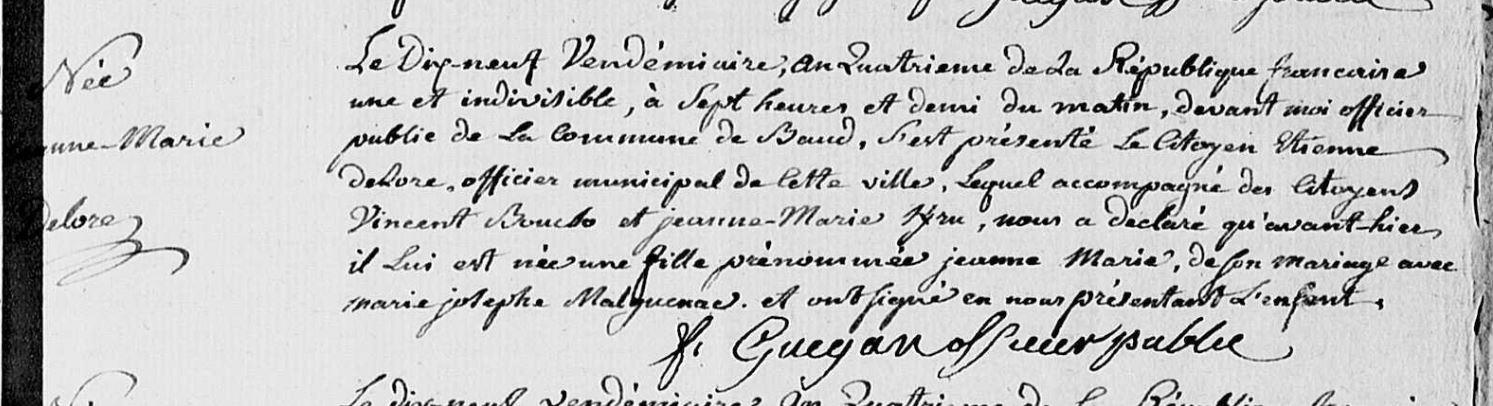 Née
nne-Marie
Delore
Le Dix-neuf Vendémiaire, an Quatrieme de La République francaise
une et indivisible, à Sept heures et demi du matin, devant moi officier
public de La Commune de Baud, S'est présenté Le Citoyen Etienne
delore, officier municipal de Cette ville, Lequel accompagné des Citoyens
Vincent et jeanne-Marie, nous a declaré qu'avant-hier
il Lui est née une fille prénommée jeanne Marie, de Son mariage avec
marie josephe Malguenac. et ont Signé en nous présentant L'enfant.
f. Guegan officier public
Le dix-neuf vendémiaire, an Quatrieme de La République